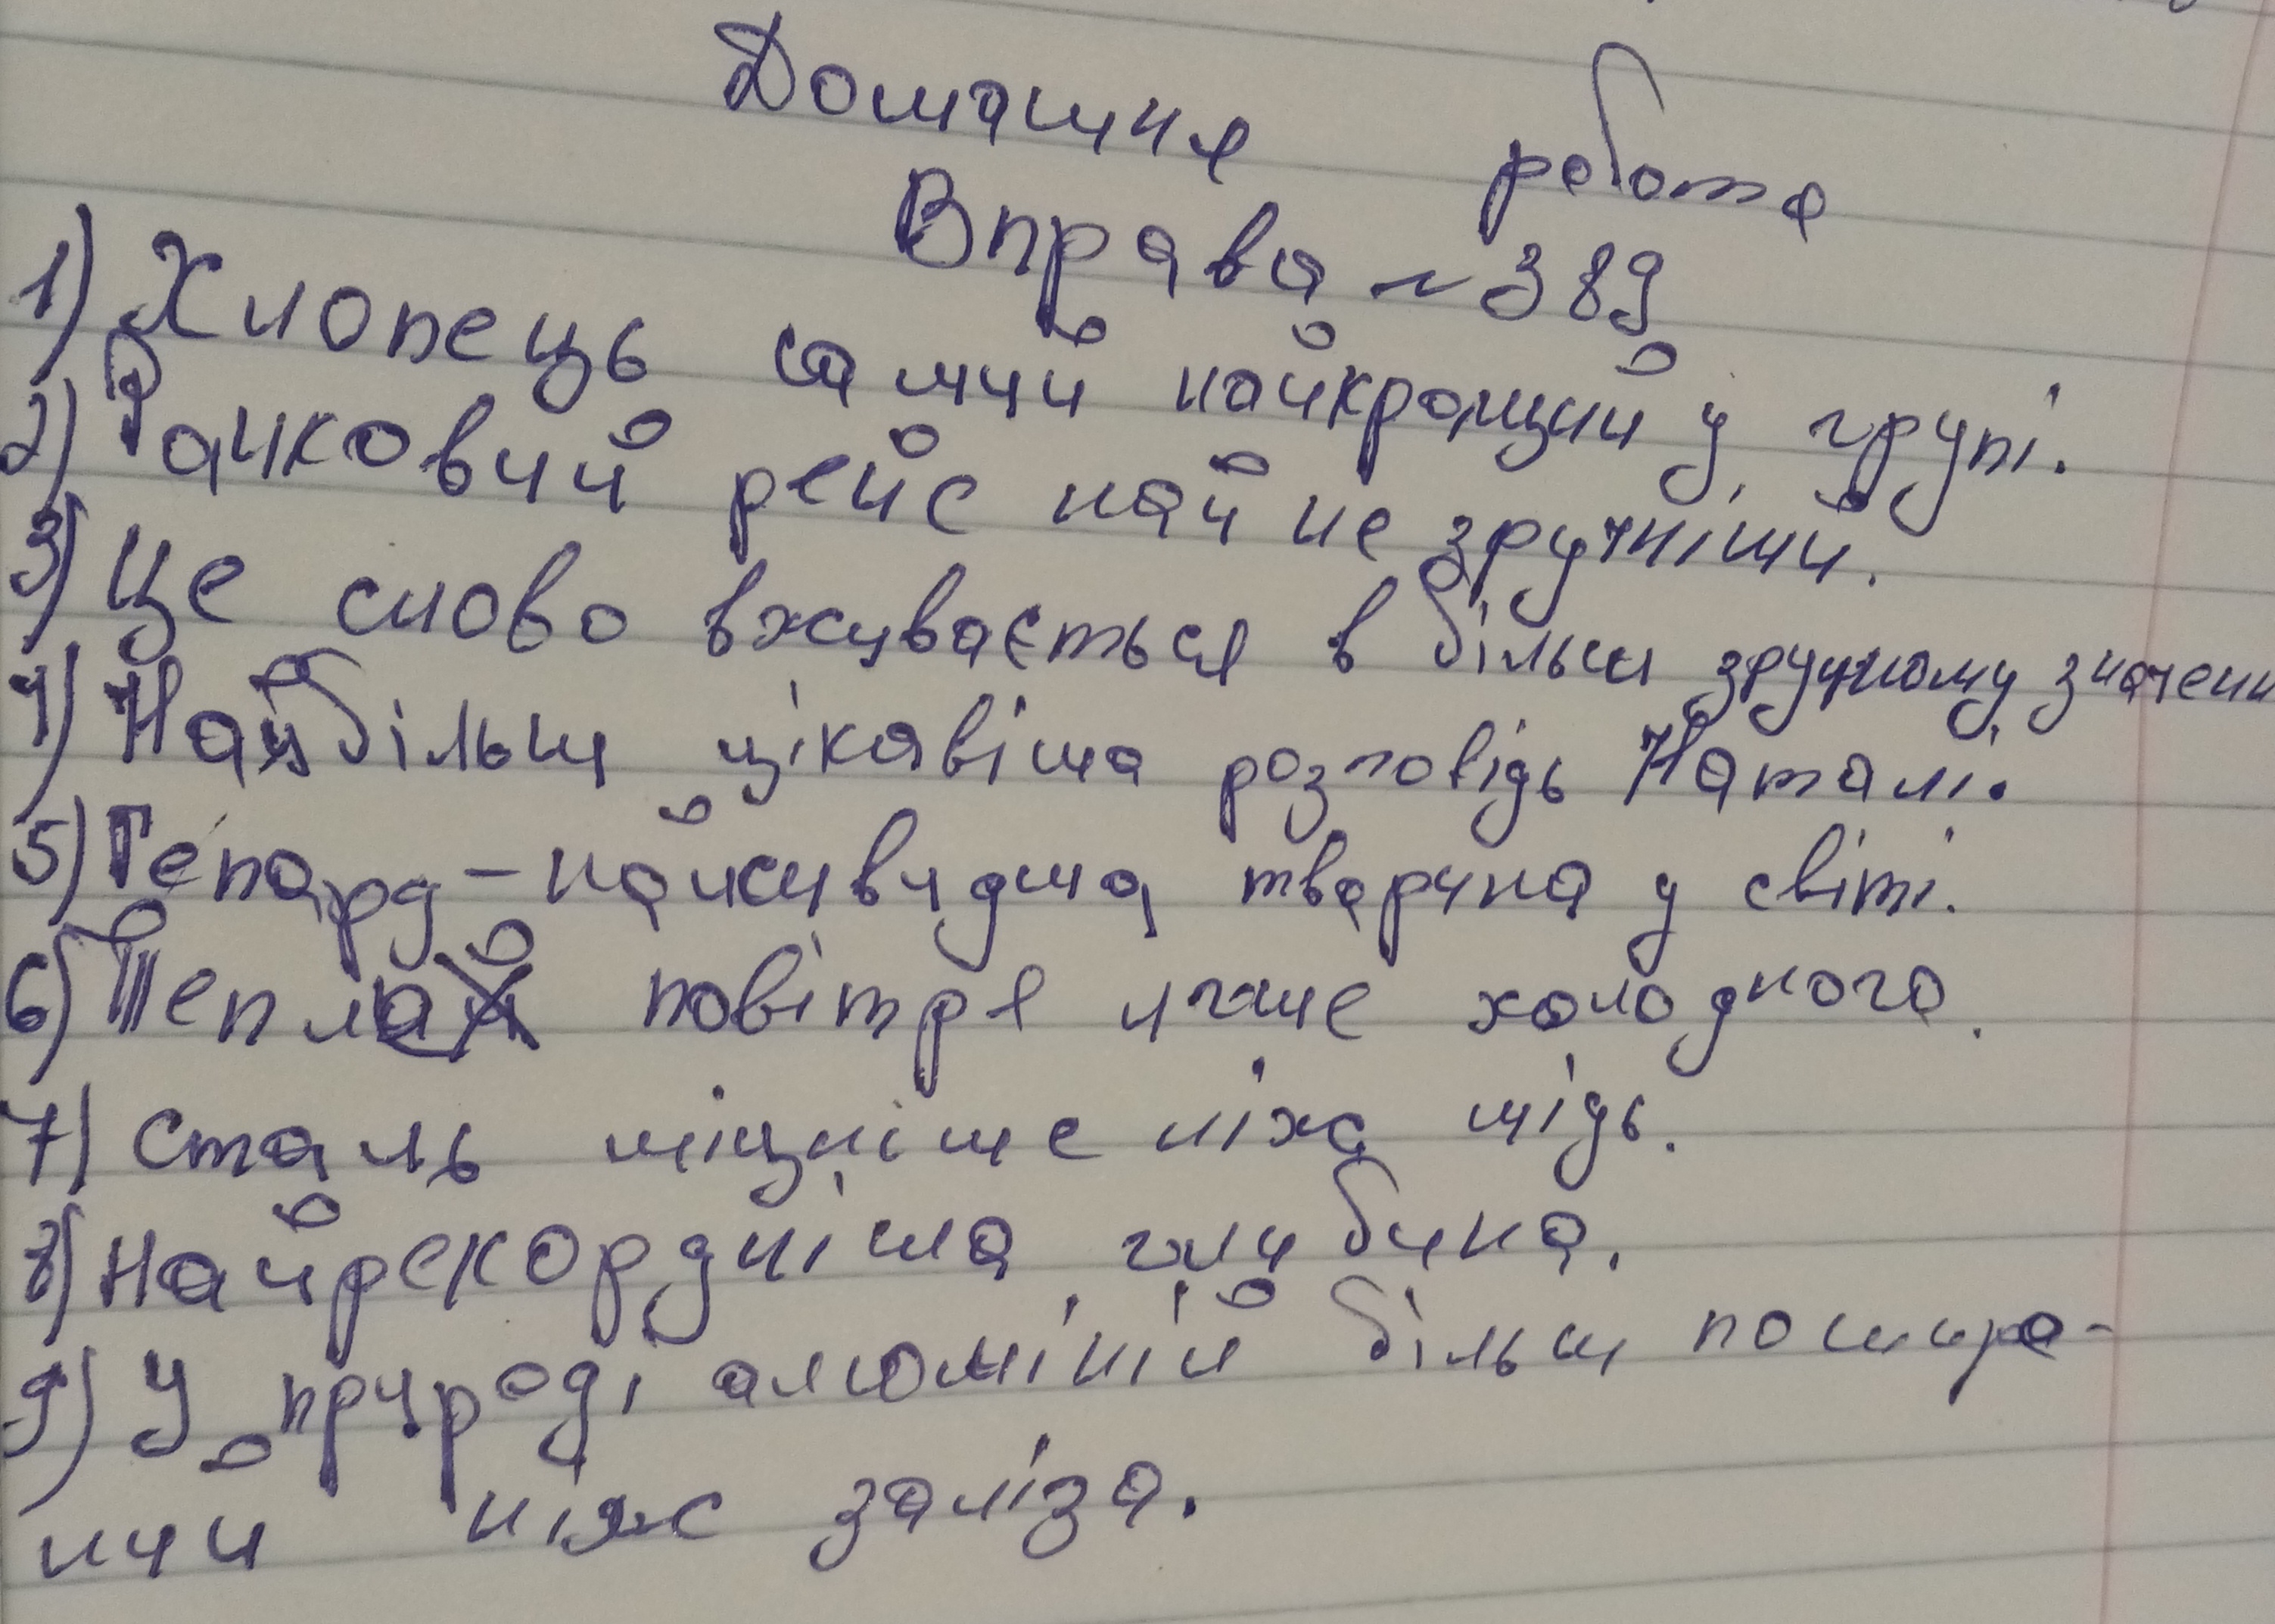 Домашня робота
Вправа № 389
1) Хлопець самий найкращий у групі.
2) Ранковий рейс най не зручніший.
3) Це слово вживається в більш зручному значенн
4) Найбільш цікавіша розповідь Наталі.
5) Гепард – найшвидша тварина у світі.
6) Тепла повітря легше холодного.
7) Сталь міцніше ніж мідь.
8) Найрекордніша глибина.
9) У природі алюміній більш пошире-
ний ніж заліза.